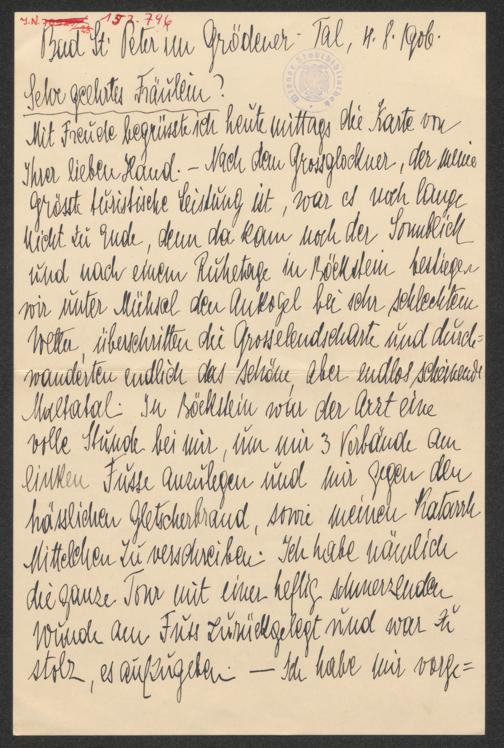 I.N. 152.796
Bad St. Peter im Grödener-Tal, 4. 8. 1906.
Wiener Stadtbibliothek
Sehr geehrtes Fräulein?
Mit Freude begrüsste ich heute mittags die Karte von
Ihrer lieben Hand. – Nach dem Grossglockner, der meine
grösste turistische Leistung ist, war es noch lange
nicht zu Ende, denn da kam noch der Sonnblick
und nach einem Ruhetage in Böckstein bestiegen
wir unter Mühsal den Ankogel bei sehr schlechtem
Wetter, überschritten die Grosselendscharte und durch=
wanderten endlich das schöne, aber endlos scheinende
Maltatal. In Böckstein war der Arzt eine
volle Stunde bei mir, um mir 3 Verbände am
linken Fusse anzulegen und mir gegen den
hässlichen Gletscherbrand, sowie meinen Katarrh
Mittelchen zu verschreiben. Ich habe nämlich
die ganze Tour mit einer heftig schmerzenden
Wunde am Fuss zurückgelegt und war zu
stolz, es aufzugeben. — Ich habe mir vorge=